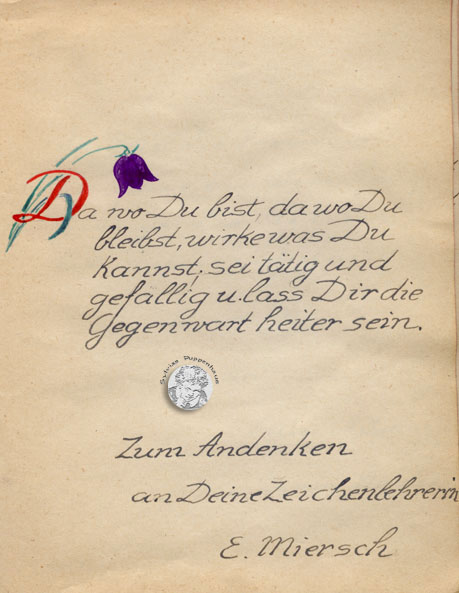 Da wo Du bist, da wo Du
bleibst, wirke was Du
kannst, sei tätig und
gefällig u. lass Dir die
Gegenwart heiter sein.
Silvias Puppenhaus
Zum Andenken
an Deine Zeichenlehrerin
E. Miersch